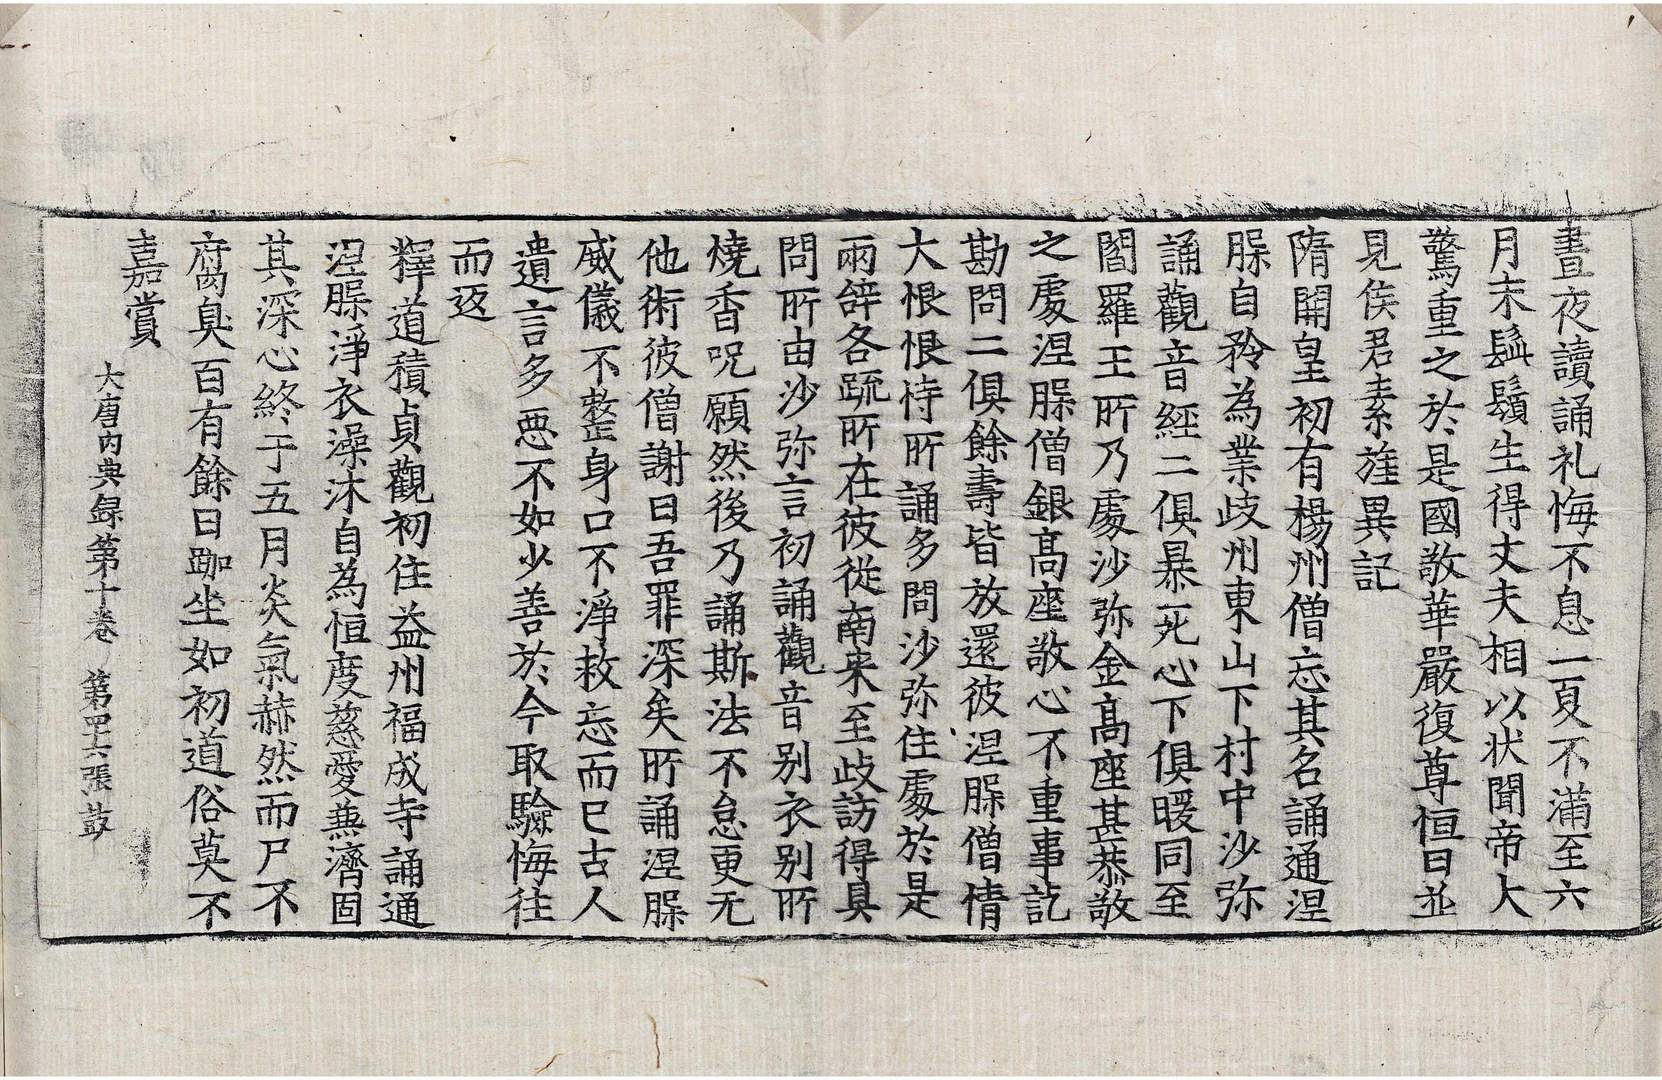 晝夜讀誦礼悔不息一夏不滿至六
月末髭鬚生得丈夫相以状聞帝大
驚重之於是國敬華嚴復尊恒日並
見侯君素旌異記
隋開皇初有楊州僧忘其名誦通涅
槃自矜為業歧州東山下村中沙弥
誦觀音經二俱暴死心下俱暖同至
閻羅王所乃處沙弥金高座甚恭敬
之處涅槃僧銀高座敬心不重事訖
勘問二俱餘壽皆放還彼涅槃僧情
大恨恨恃所誦多問沙弥住處於是
兩辝各疏所在彼從南来至歧訪得具
問所由沙弥言初誦觀音別衣別所
燒香呪願然後乃誦斯法不怠更无
他術彼僧謝曰吾罪深矣所誦涅槃
威儀不整身口不淨救忘而已古人
遺言多惡不如少善於今取驗悔往
而返
釋道積貞觀初住益州福成寺誦通
涅槃淨衣澡沐自為恒度慈愛兼濟固
其深心終于五月炎氣赫然而尸不
腐臭百有餘日跏坐如初道俗莫不
嘉賞
大唐內典録第十卷 第四十六張 鼓